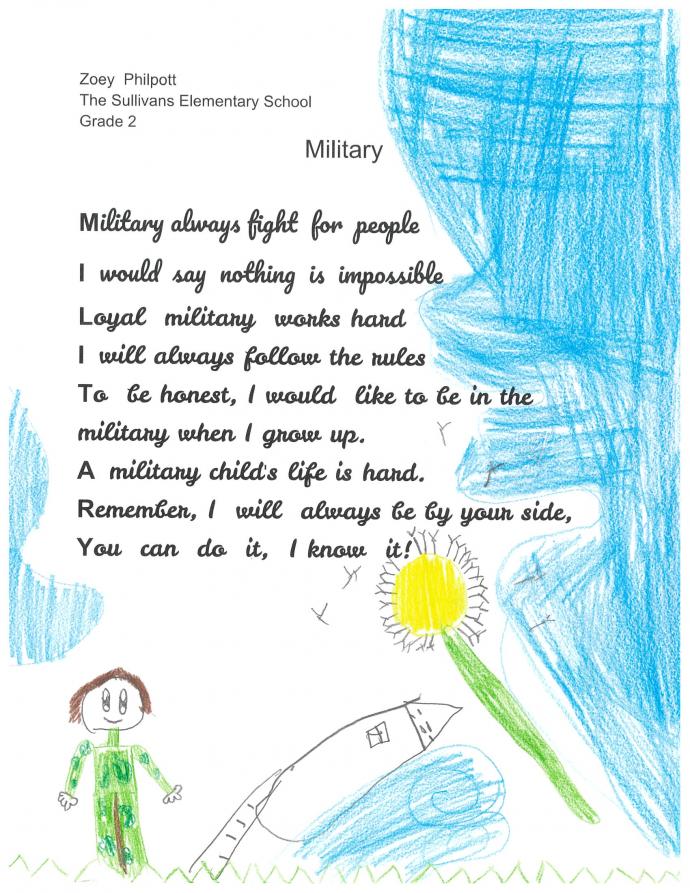 Zoey Philpott
The Sullivans Elementary School
Grade 2
Military
Military always fight for people
I would say nothing is impossible
Loyal military works hard
I will always follow the rules
To be honest, I would like to be in the
military when I grow up.
A military child's life is hard.
Remember, I will always be by your side,
You can do it, I know it!